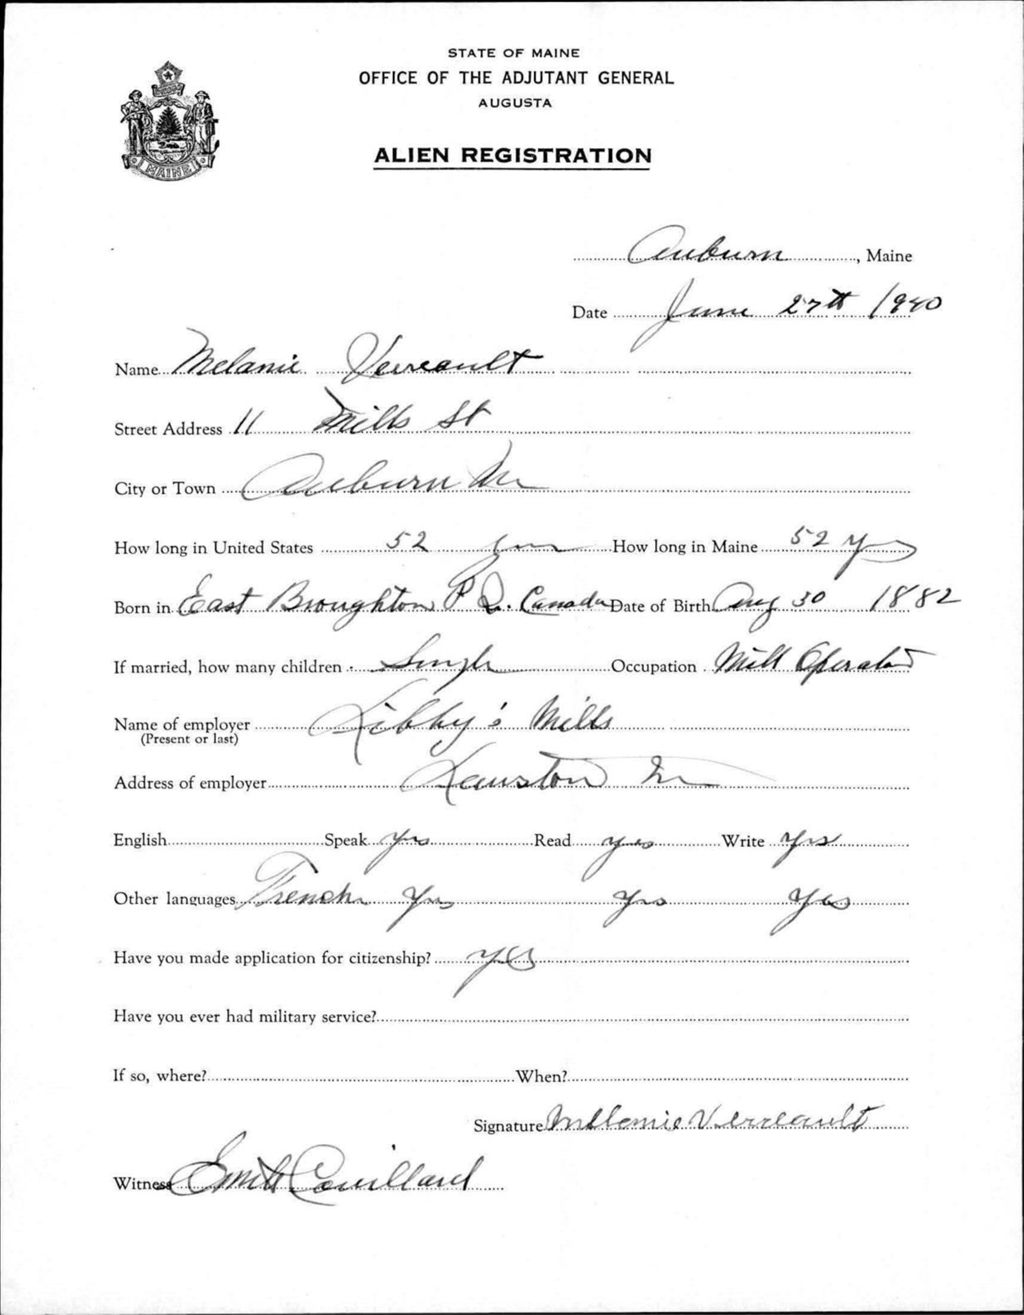 STATE OF MAINE
OFFICE OF THE ADJUTANT GENERAL
AUGUSTA
ALIEN REGISTRATION
MAINE
Auburn, Maine
Date June 27th 1940
Name Melanie Verreault
Street Address 11 Mills St
City or Town Auburn Me
How long in United States 52 yrs How long in Maine 52 yrs
Born in East Broughton P Q. Canada Date of Birth Aug 30 1882
If married, how many children Single Occupation Mill Operator
Name of employer Libby's Mills
(Present or last)
Address of employer Lewiston Me
English Speak yes Read yes Write yes
Other languages French yes yes yes
Have you made application for citizenship? yes
Have you ever had military service?
If so, where? When?
Signature Mellanie Verreault
Witness Couillard